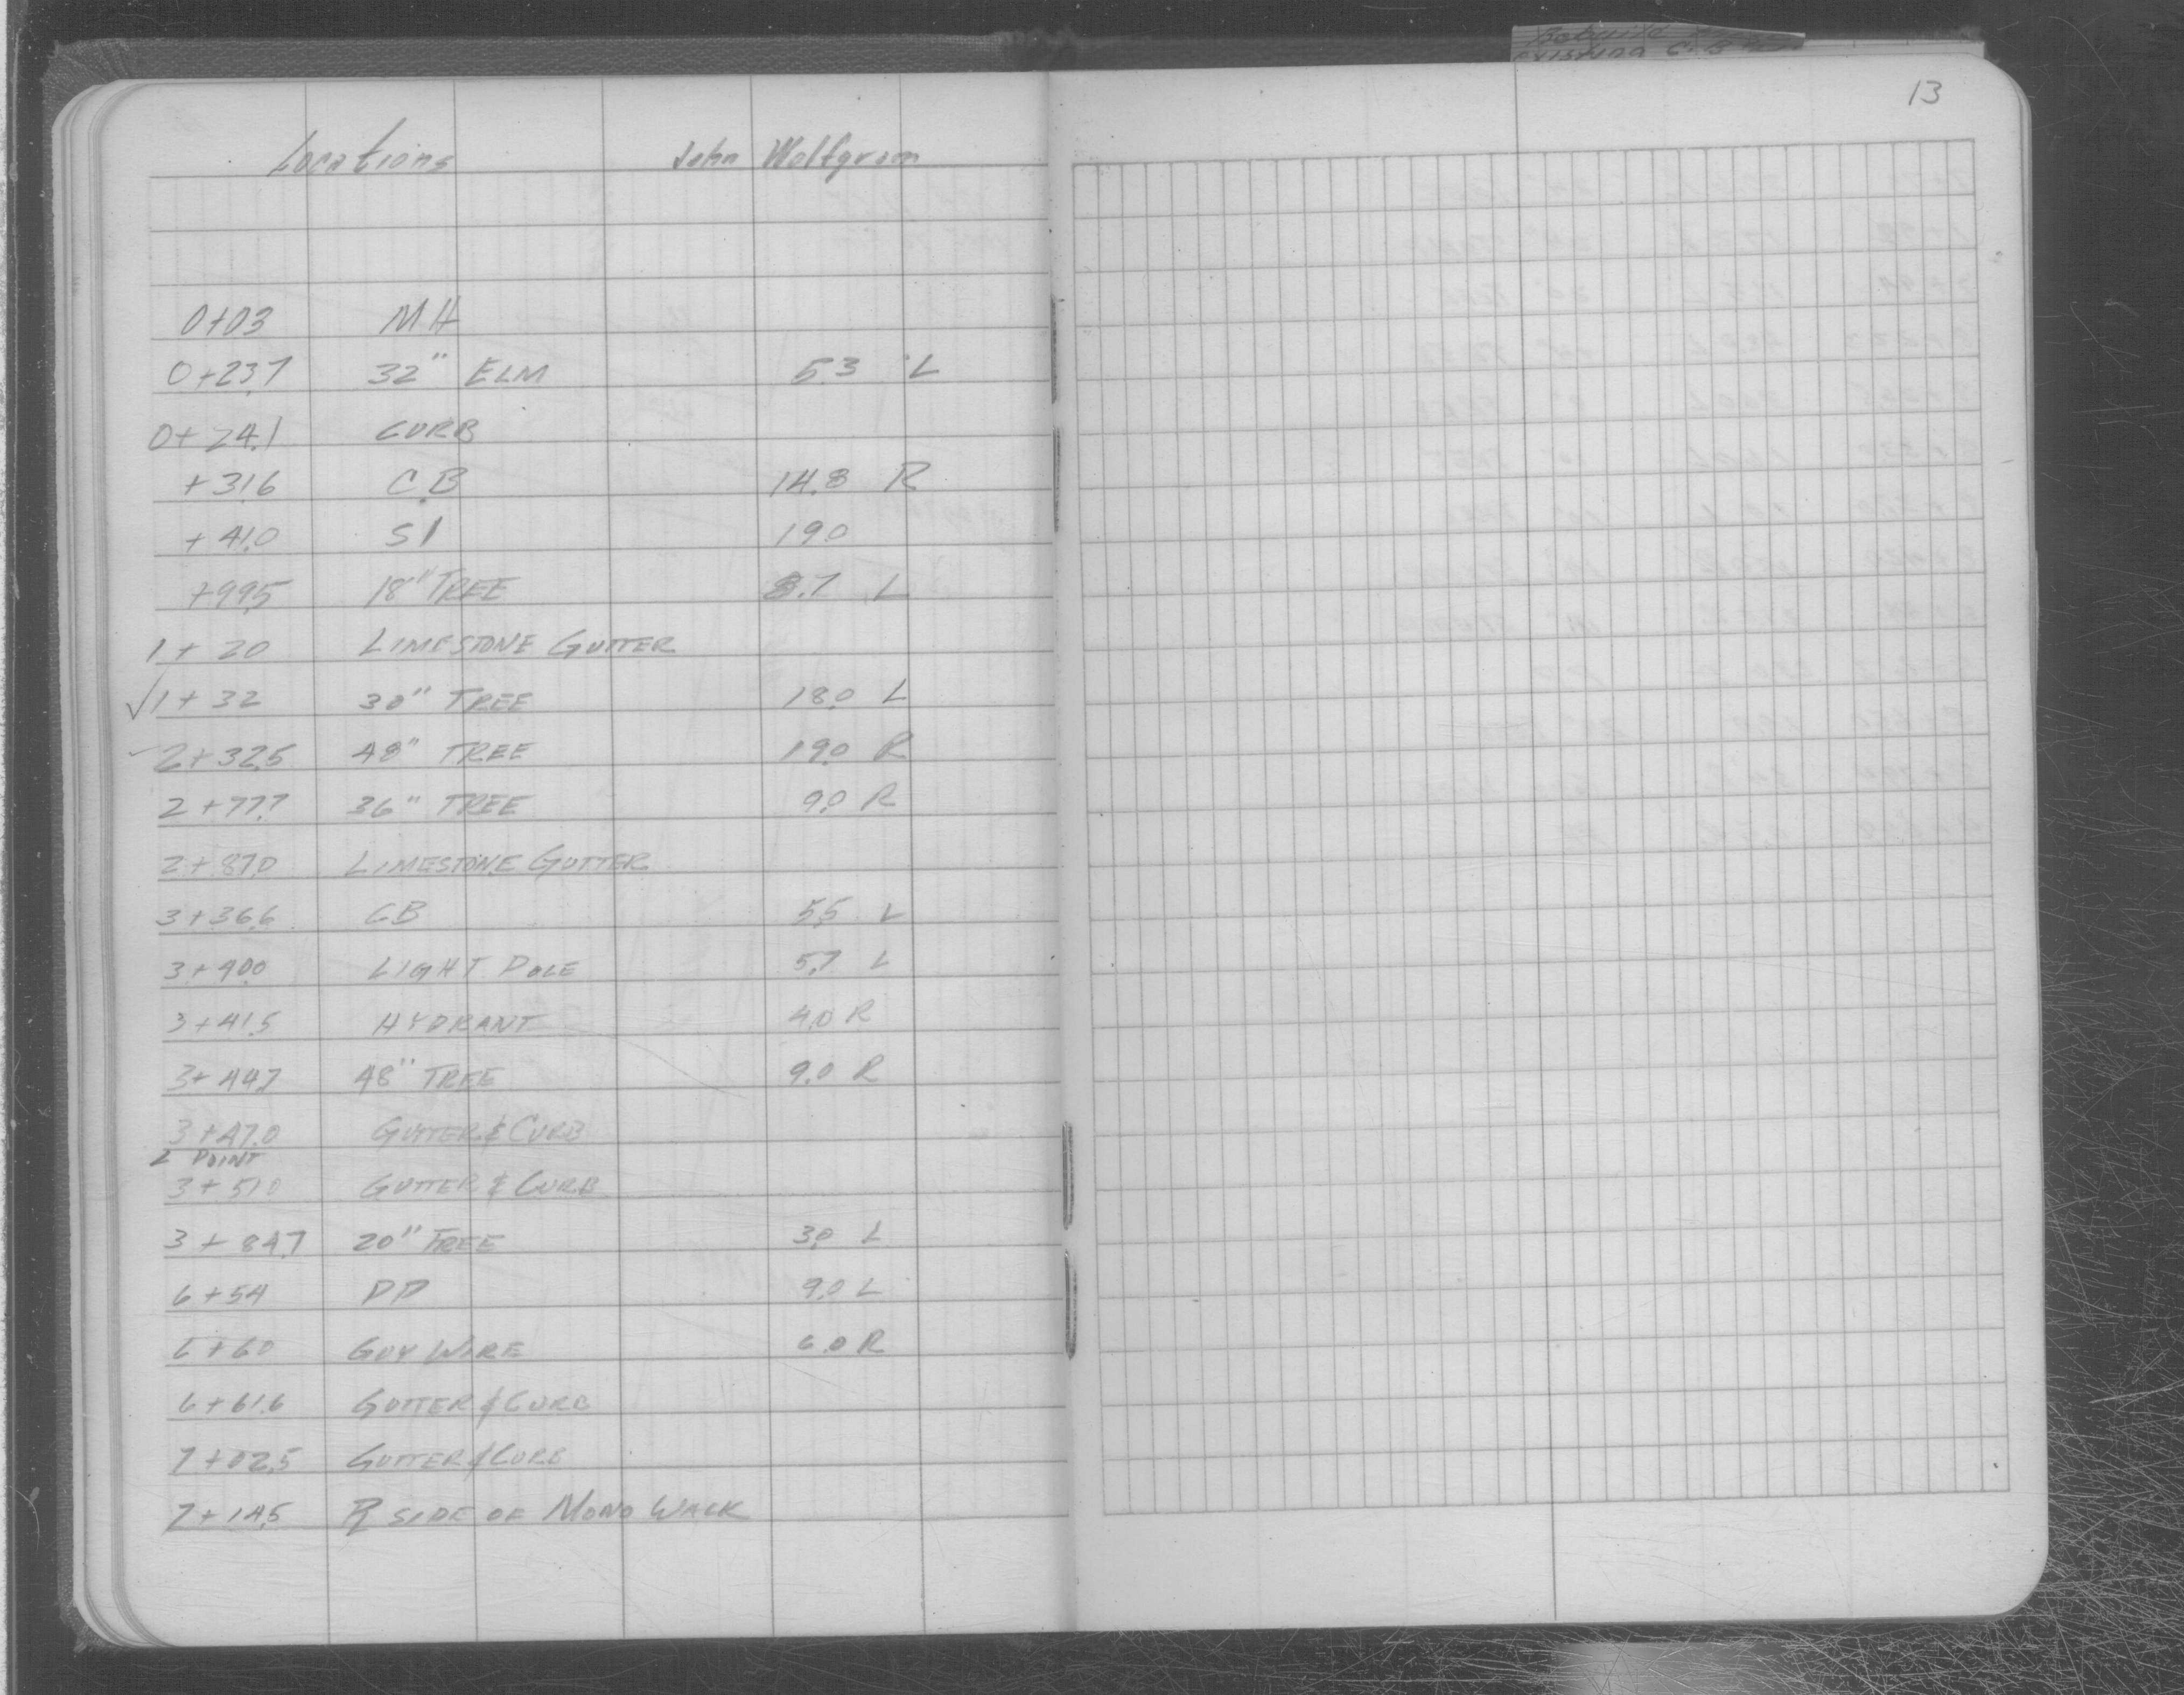 13
Locations John Wolfgram
0+03 MH
0+23.7 32" ELM 5.3 L
0+24.1 CURB
+31.6 C.B 14.8 R
+41.0 SI 19.0
+99.5 18" TREE 8.7 L
1+20 LIMESTONE GUTTER
√1+32 30" TREE 18.0 L
2+32.5 48" TREE 19.0 R
2+77.7 36" TREE 9.0 R
2+87.0 LIMESTONE GUTTER
3+36.6 CB 5.5 L
3+40.0 LIGHT POLE 5.7 L
3+41.5 HYDRANT 4.0 R
3+44.7 48" TREE 9.0 R
3+47.0 GUTTER & CURB
POINT
3+51.0 GUTTER & CURB
3+84.7 20" TREE 3.0 L
6+54 PP 9.0 L
6+60 GUY WIRE 6.0 R
6+61.6 GUTTER & CURB
7+02.5 GUTTER & CURB
7+14.5 R SIDE OF MONO WALK